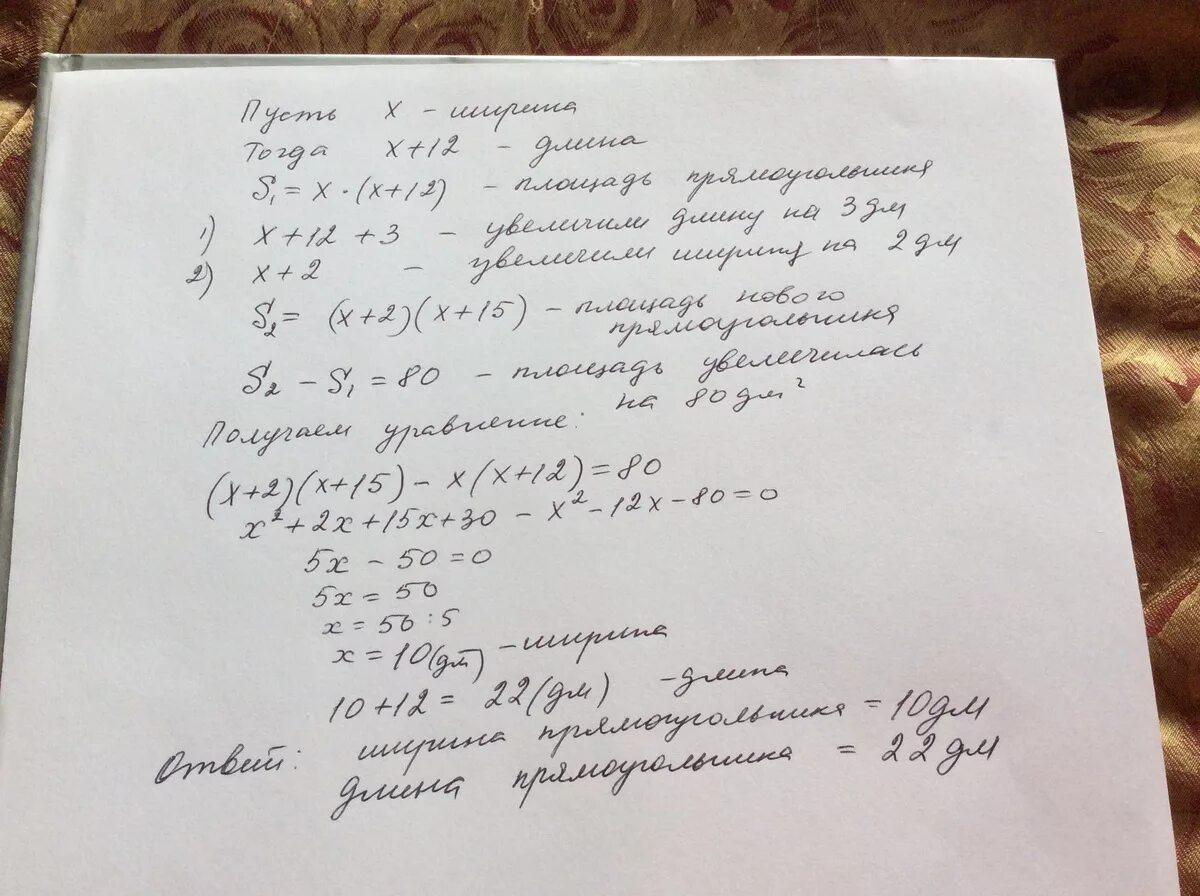 Пусть x – ширина
Тогда x+12 – длина
S₁ = x · (x+12) – площадь прямоугольника
1) x+12+3 – увеличили длину на 3 дм
2) x+2 – увеличили ширину на 2 дм
S₂ = (x+2)(x+15) – площадь нового
прямоугольника
S₂ – S₁ = 80 – площадь увеличилась
на 80 дм²
Получаем уравнение:
(x+2)(x+15) – x(x+12) = 80
x² + 2x + 15x + 30 – x² – 12x – 80 = 0
5x – 50 = 0
5x = 50
x = 50 : 5
x = 10 (дм) – ширина
10 + 12 = 22 (дм) – длина
Ответ: ширина прямоугольника = 10 дм
длина прямоугольника = 22 дм